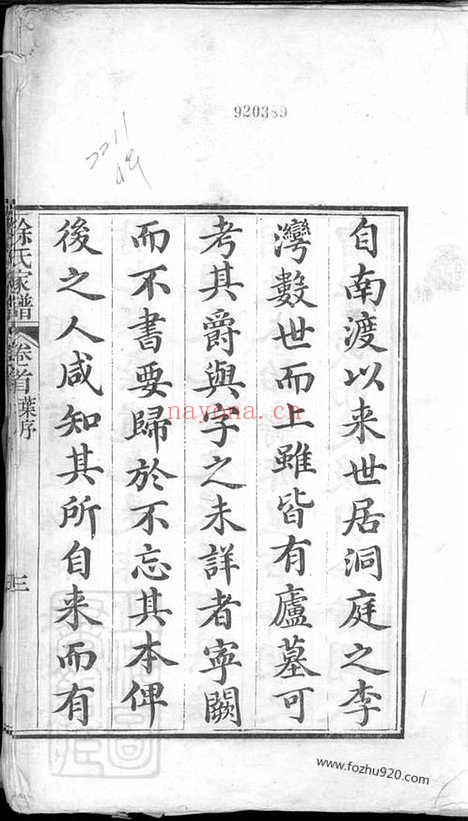 920389
自南渡以来世居洞庭之李
灣数世而上雖皆有廬墓可
考其爵與字之未詳者寧闕
而不書要歸於不忘其本俾
後之人咸知其所自来而有
徐氏家譜
卷首葉序
三
nayona.cn
www.fozhu920.com